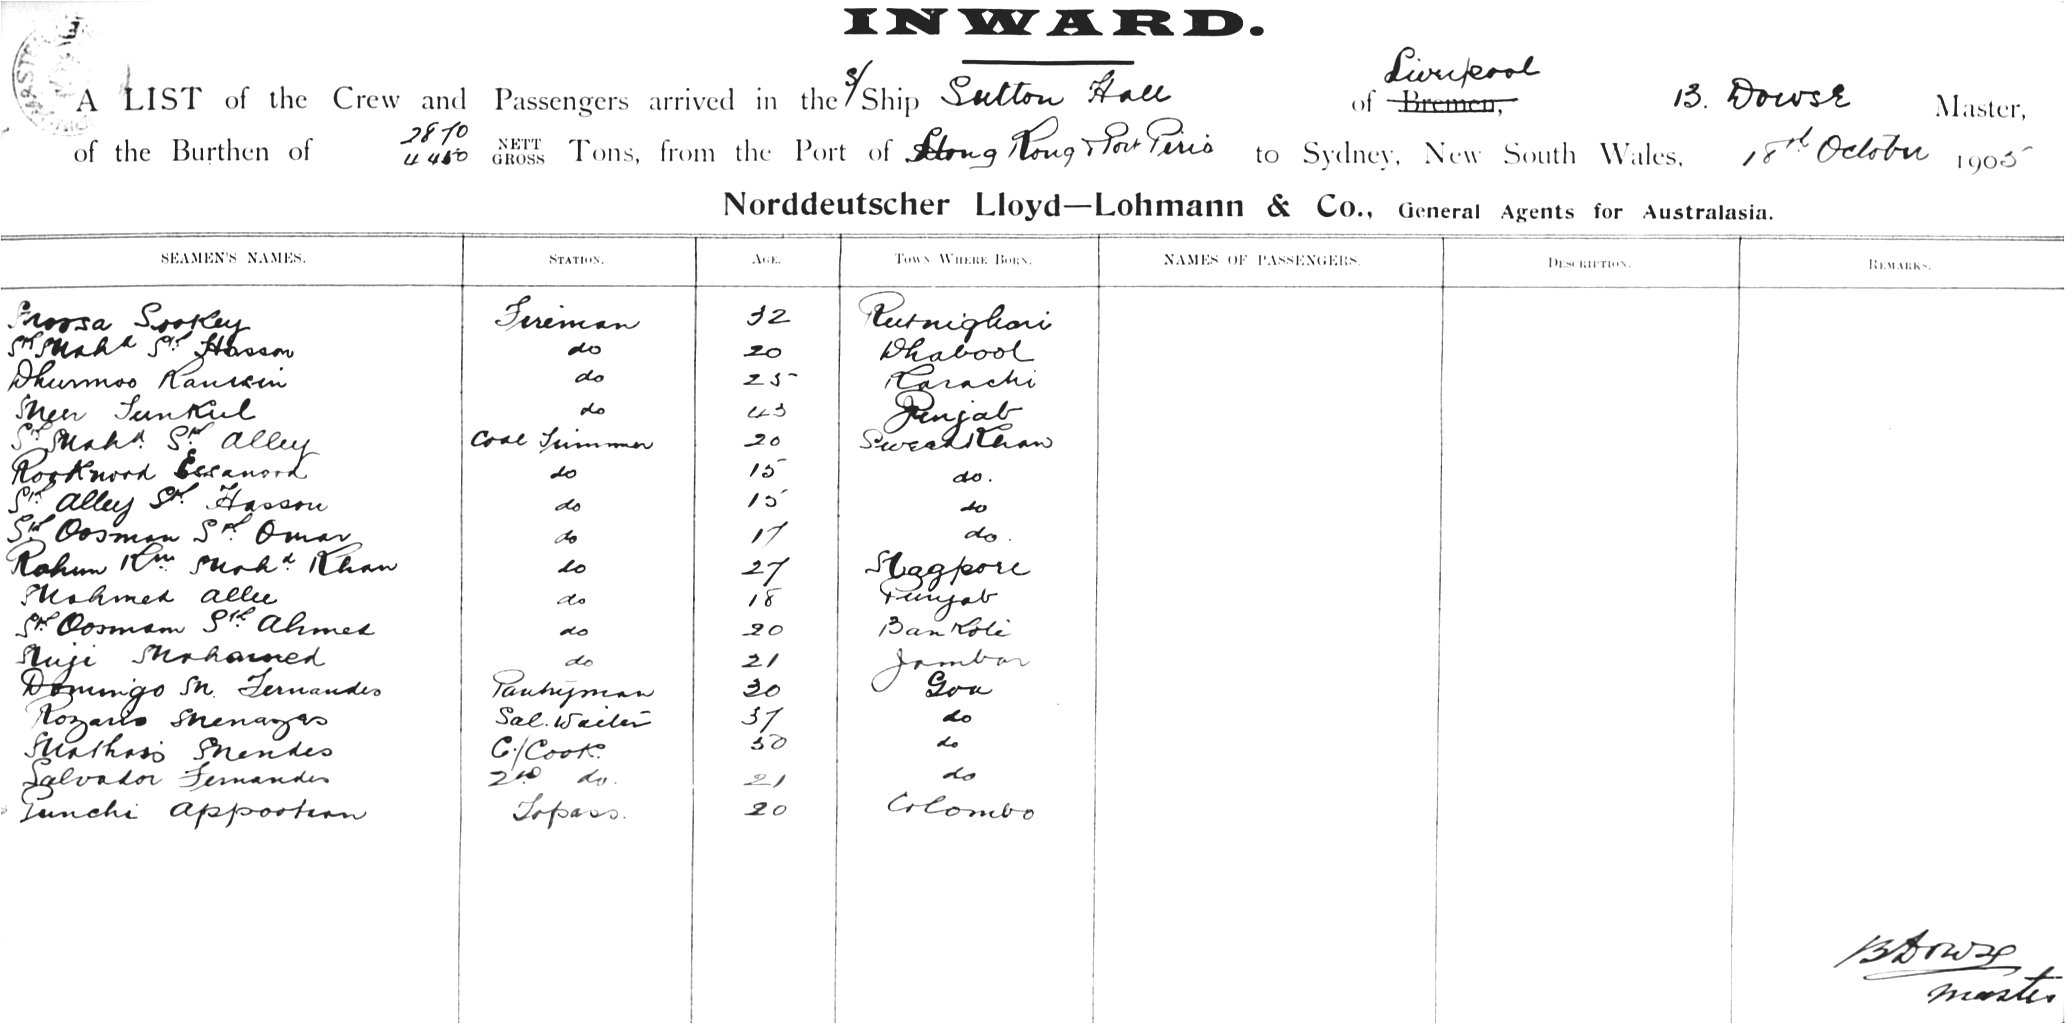 INWARD.
A LIST of the Crew and Passengers arrived in the S/Ship Sutton Hall of Liverpool Bremen, B. Dowse Master,
of the Burthen of 2870 4450 NETT GROSS Tons, from the Port of Hong Kong & Port Pirie to Sydney, New South Wales, 18th October 1905
Norddeutscher Lloyd—Lohmann & Co., General Agents for Australasia.
SEAMEN'S NAMES. STATION. AGE. TOWN WHERE BORN. NAMES OF PASSENGERS. DESCRIPTION. REMARKS.
Moosa Sookey Fireman 32 Rutnighari
Sk Mahd Sk Hasson do 20 Dhabool
Dhurmoo do 25 Karachi
Meer do 43 Punjab
Sk Mahd Sk Alley Coal Trimmer 20
Rooknood Essanood do 15 do.
Sk Alley Sk Hasson do 15 do
Sk Oosman Sk Omar do 17 do.
Rahim Kn Mahd Khan do 27 Nagpore
Mahmed Allee do 18 Punjab
Sk Oosmam Sk Ahmed do 20 Bankote
Mohamed do 21
Domingo M. Fernandes Pantryman 30 Goa
Rozario Menazes Sal. Waiter 37 do
Mathais Mendes C/Cook. 50 do
Salvador Fernandes 2nd do. 21 do
Punchi Appootian Topass. 20 Colombo
B Dowse
Master